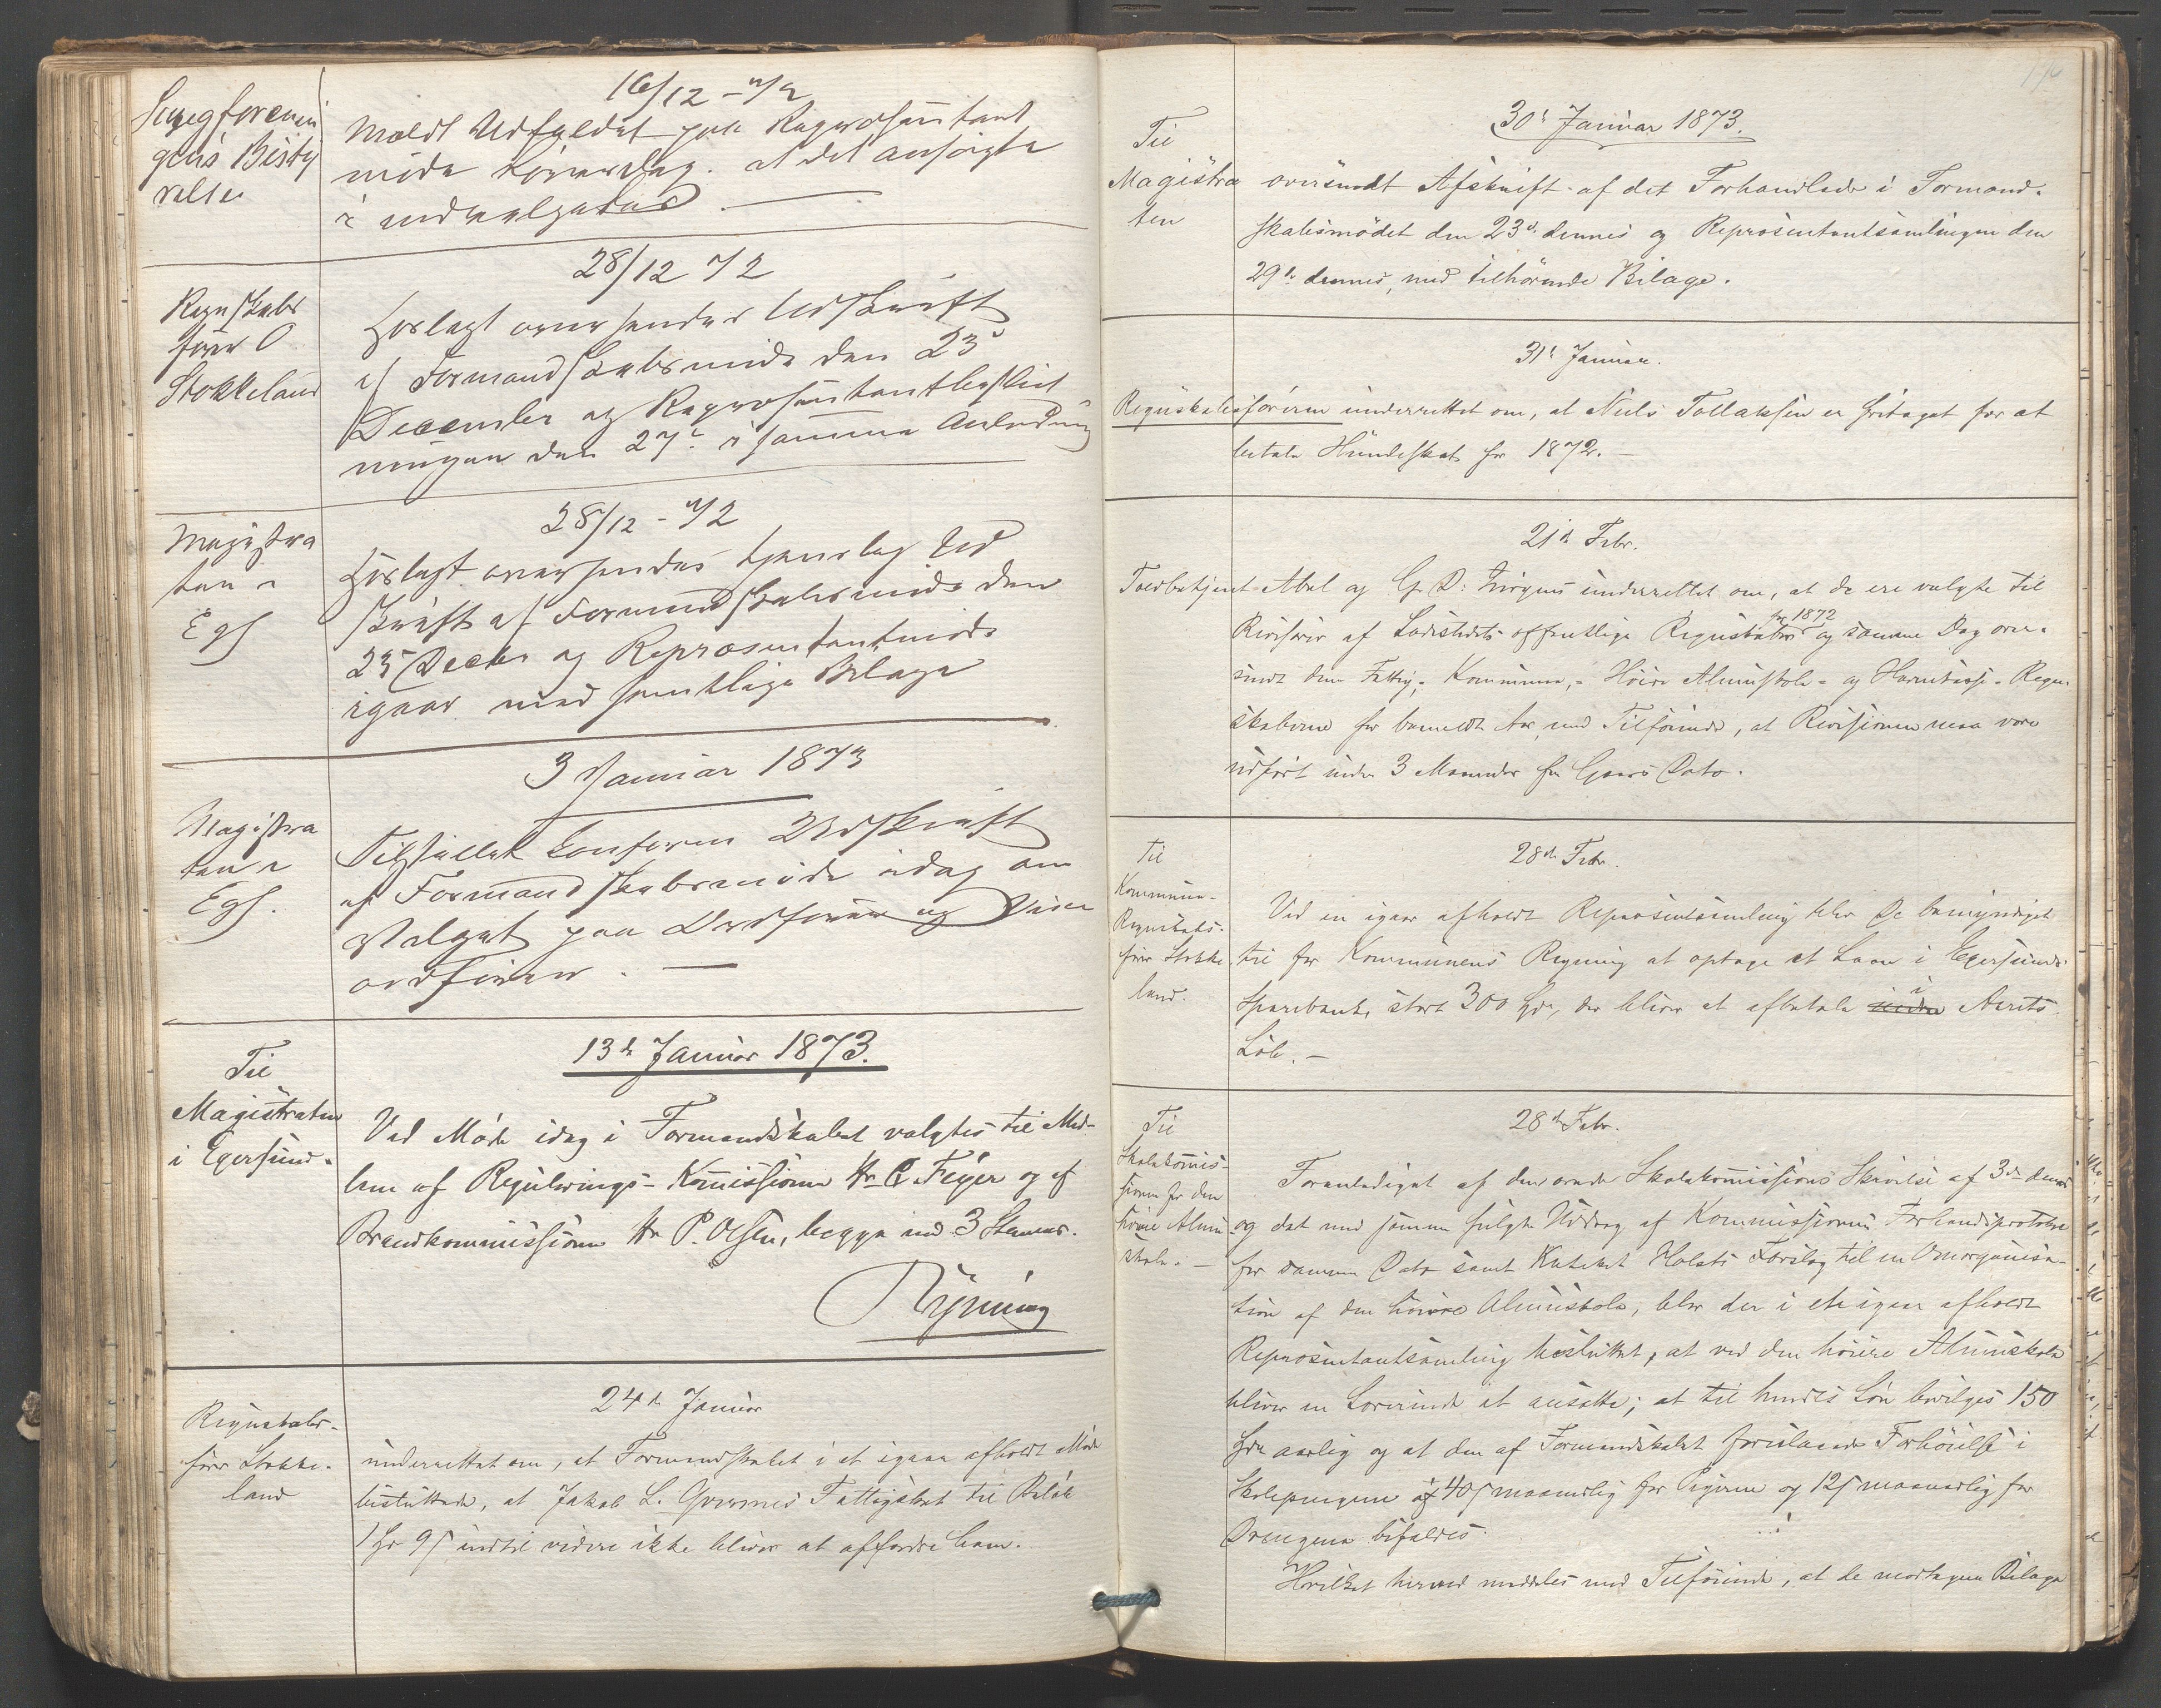 16/12 – 72
Sangforenin
gens Besty
relse
Meldt Udfaldet paa Repræsentant
møde Løverdag. at det ansøgte
er indvilgedes. —
28/12 72
Regnskabs
fører O
Stokkeland
Forlagt oversendes Udskrift
af Formandskabsmøde den 23d
December og Repræsentantbeslut
ningen den 27de i samme Anledning
28/12 - 72
Magistra
ten i
Egs
Forlagt oversendes Gjenslag Ud
skrift af Formandskabsmøde den
23 Decbr og Repræsentantmøde
igaar med samtlige Bilage
3 Januar 1873
Magistra
ten i
Egs.
Tilstillet konform Udskrift
af Formandskabsmøde idag om
Valget paa Ordfører og Vice
ordfører. —
13de Januar 1873.
Til
Magistraten
i Egersund.
Ved Møde idag i Formandskabet valgtes til Med-
lem af Regulerings-Kommissionen Hr. C. Feyer og af
Brandkommissionen Hr P. Olsen, begge med 3 Stemmer.
24de Januar
Regnskabs-
fører Stokke-
land
underrettet om, at Formandskabet i et igaar afholdt Møde
besluttede, at Jakob L. Fattigskat til Beløb
indtil videre ikke bliver at affordre ham.
30te Januar 1873.
Til
Magistra
ten
oversendt Afskrift af det Forhandlede i Formand-
skabsmødet den 23de dennes og Repræsentantsamlingen den
29de dennes, med tilhørende Bilage.
31te Januar.
Regnskabsføreren underrettet om, at Niels Tollaksen er fritaget for at
betale Hundeskat for 1872. —
21de Febr.
Toldbetjent Abel og G. D. underrettet om, at de ere valgte til
for 1872
Revisorer af Ladestedets offentlige Regnskaber og samme Dag over-
sendt dem Fattig-, Kommune-, Høiere Almuskole- og Havnekasse-Regn-
skaberne for bemeldte Aar, med Tilføiende, at Revisionen maa være
udført inden 3 Maaneder fra Gaars Dato.
28de Febr.
Til
Kommune-
Regnskabs-
fører Stokke
land.
Ved en igaar afholdt Repræsentsamling blev De bemyndiget
til for Kommunens Regning at optage et Laan i Egersunds
Sparebank, stort 300 Spd, der bliver at afbetale i Aarets
Løb. —
28de Febr.
Til
Skolekommis-
sionen for den
høiere Almu-
skole. —
Foranlediget af den ærede Skolekommissions Skrivelse af 3de dennes
og det med samme fulgte Uddrag af Kommissionens Forhandsprotokol
for samme Dato samt Kateket Holsts Forslag til en Omorganisa-
tion af den høiere Almuskole, blev der i et igaar afholdt
Repræsentantsamling besluttet, at ved den høiere Almuskole
bliver en Lærerinde at ansætte; at til hendes Løn bevilges 150
Spd aarlig og at den af Formandskabet foreslaaede Forhøielse i
Skolepengene af 40 s maanedlig for Pigerne og 12 s maanedlig for
Drengene bifaldes.
Hvilket herved meddeles med Tilføiende, at de modtagne Bilage